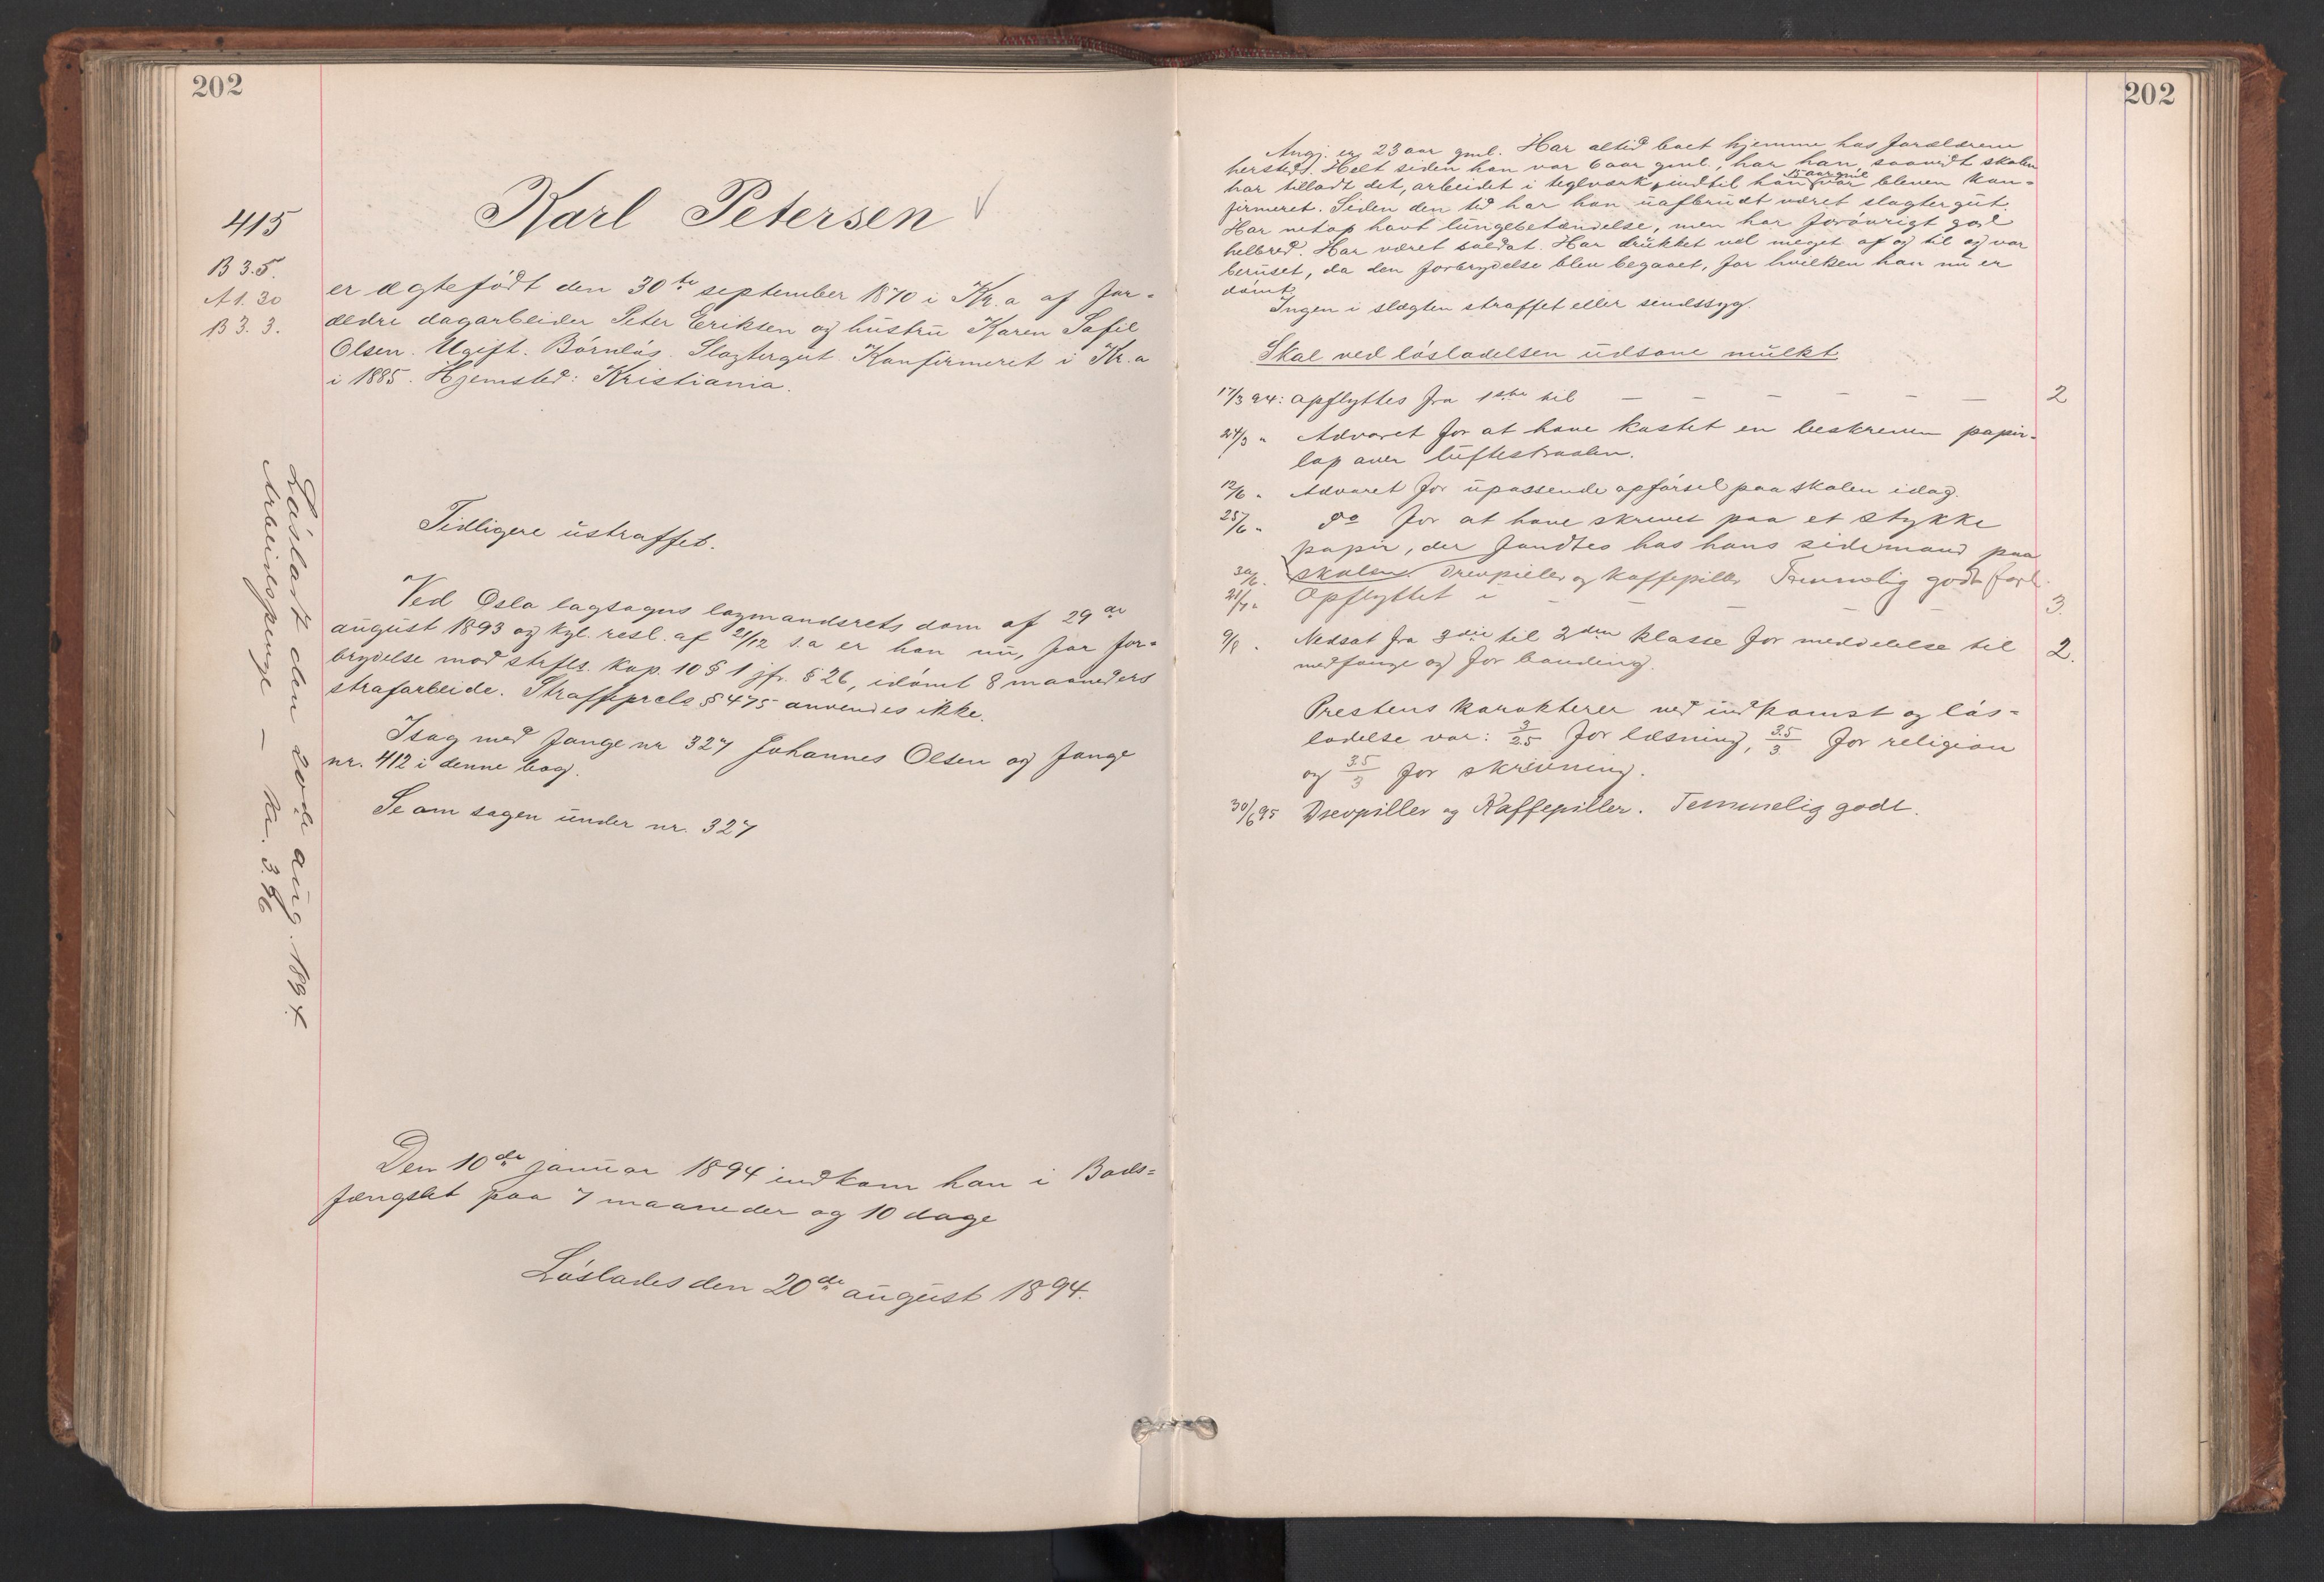 202
415
B 3.5.
A 1. 30
B 3. 3.
Karl Petersen
er ægtefødt den 30te september 1870 i Kr.a af for-
ældre dagarbeider Peter Eriksen og hustru Karen Sofie
Olsen. Ugift. Børnløs. Slagtergut. Konfirmeret i Kr.a
i 1885. Hjemsted: Kristiania.
Løsladt den 20de aug. 1894.
Arbeidspenge — Kr. 3.86
Tidligere ustraffet.
Ved Oslo lagsogns lagmandsrets dom af 29de
august 1893 og kgl. resl. af 21/12 s.a er han nu, for for-
brydelse mod strfls. kap. 10 § 1 jfr. § 26, idømt 8 maaneders
strafarbeide. Straffeprcls § 475 anvendes ikke.
Isag med fange nr 327 Johannes Olsen og fange
nr. 412 i denne bog.
Se om sagen under nr. 327
Den 10de januar 1894 indkom han i Bods-
fængslet paa 7 maaneder og 10 dage
Løslades den 20de august 1894.
202
Angj. er 23 aar gml. Har altid boet hjemme hos forældrene
hersteds. Helt siden han var 6 aar gml., har han, saavidt skolen
har tilladt det, arbeidet i teglværk, indtil han 15 aar gml. var bleven kon-
firmeret. Siden den tid har han uafbrudt været slagtergut.
Har netop havt lungebetændelse, men har forøvrigt god
helbred. Har været soldat. Har drukket vel meget af og til og var
beruset, da den forbrydelse blev begaaet, for hvilken han nu er
dømt.
Ingen i slægten straffet eller sindssyg.
Skal ved løsladelsen udsone mulkt
17/3 94: opflyttes fra 1ste til — — — — — — 2
24/3 " Advaret for at have kastet en beskreven papir-
lap over luftestraalen.
12/6 " Advaret for upassende opførsel paa skolen idag.
25/6 " do for at have skrevet paa et stykke
papir, der fandtes hos hans sidemand paa
skolen.
30/6 " Drevpiller og Kaffepiller Temmelig godt forh.
21/7 " Opflyttet i — — — — — 3.
9/8 " Nedsat fra 3die til 2den klasse for meddelelse til 2.
medfange og for banding.
Prestens karakterer ved indkomst og løs-
ladelse var: 3/2.5 for læsning, 3.5/3 for religion
og 3.5/3 for skrivning.
30/6 95 Drevpiller og Kaffepiller. Temmelig godt.